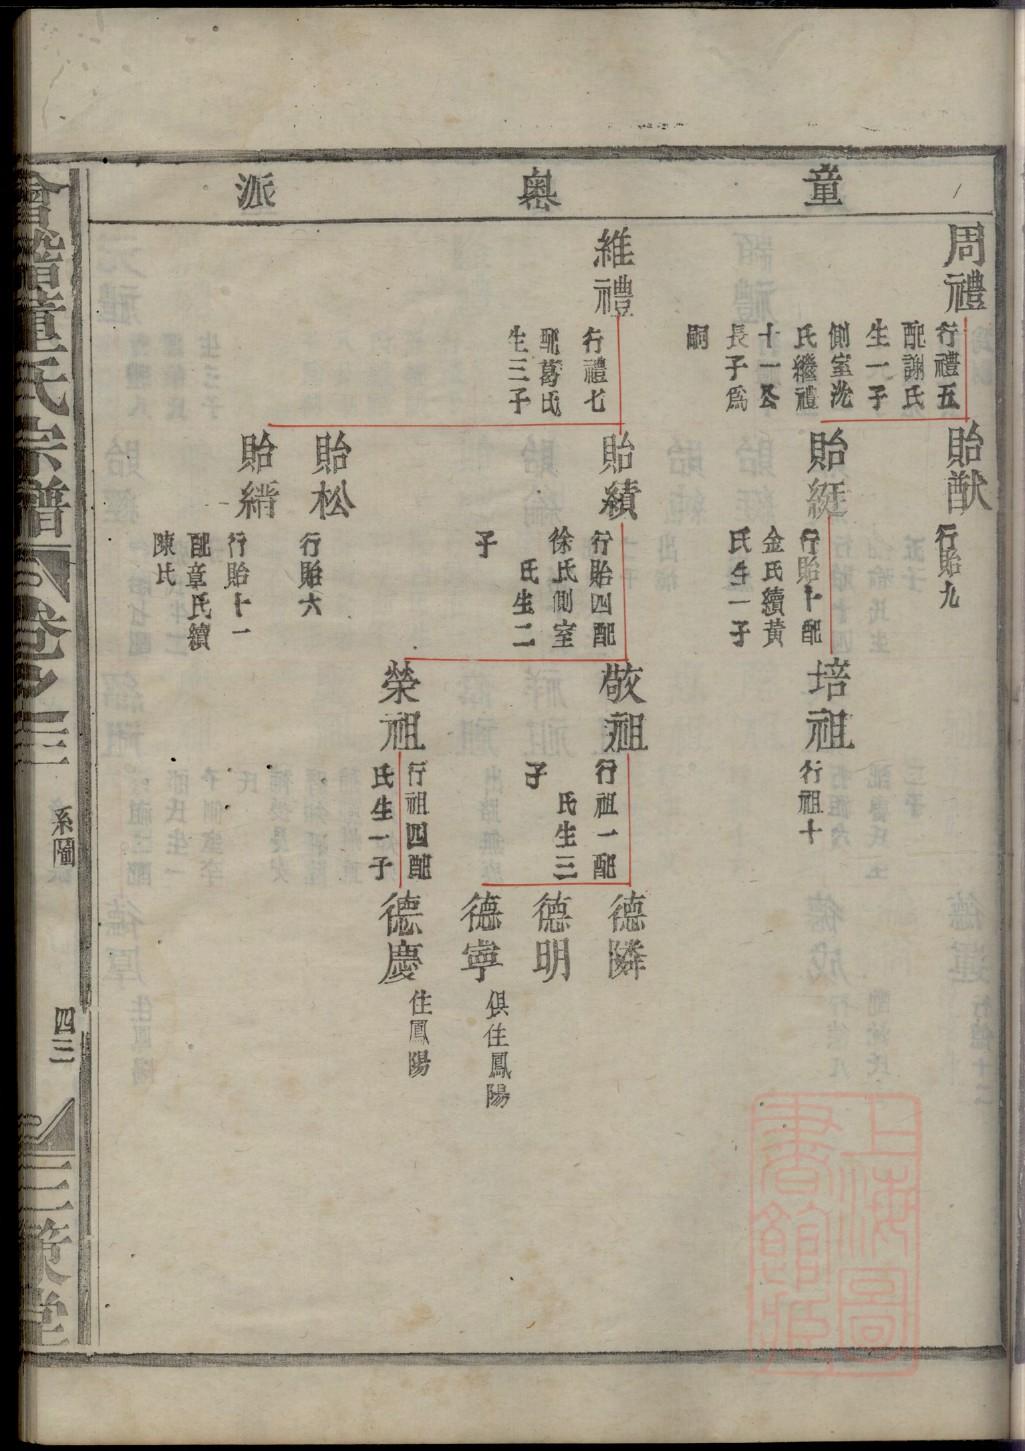 童奧派
周禮
行禮五
配謝氏
生一子
側室沈
氏繼禮
十一公
長子為
嗣
貽猷
行貽九
貽綎
行貽十配
金氏續黃
氏生一子
培祖
行祖十
維禮
行禮七
配葛氏
生三子
貽績
行貽四配
徐氏側室
氏生二
子
敬祖
行祖一配
氏生三
子
德隣
德明
德寧
俱住鳳陽
榮祖
行祖四配
氏生一子
德慶
住鳳陽
貽松
行貽六
貽縉
行貽十一
配章氏續
陳氏
會稽童氏宗譜
卷之三
系圖
四三
三策堂
上海圖
書館藏